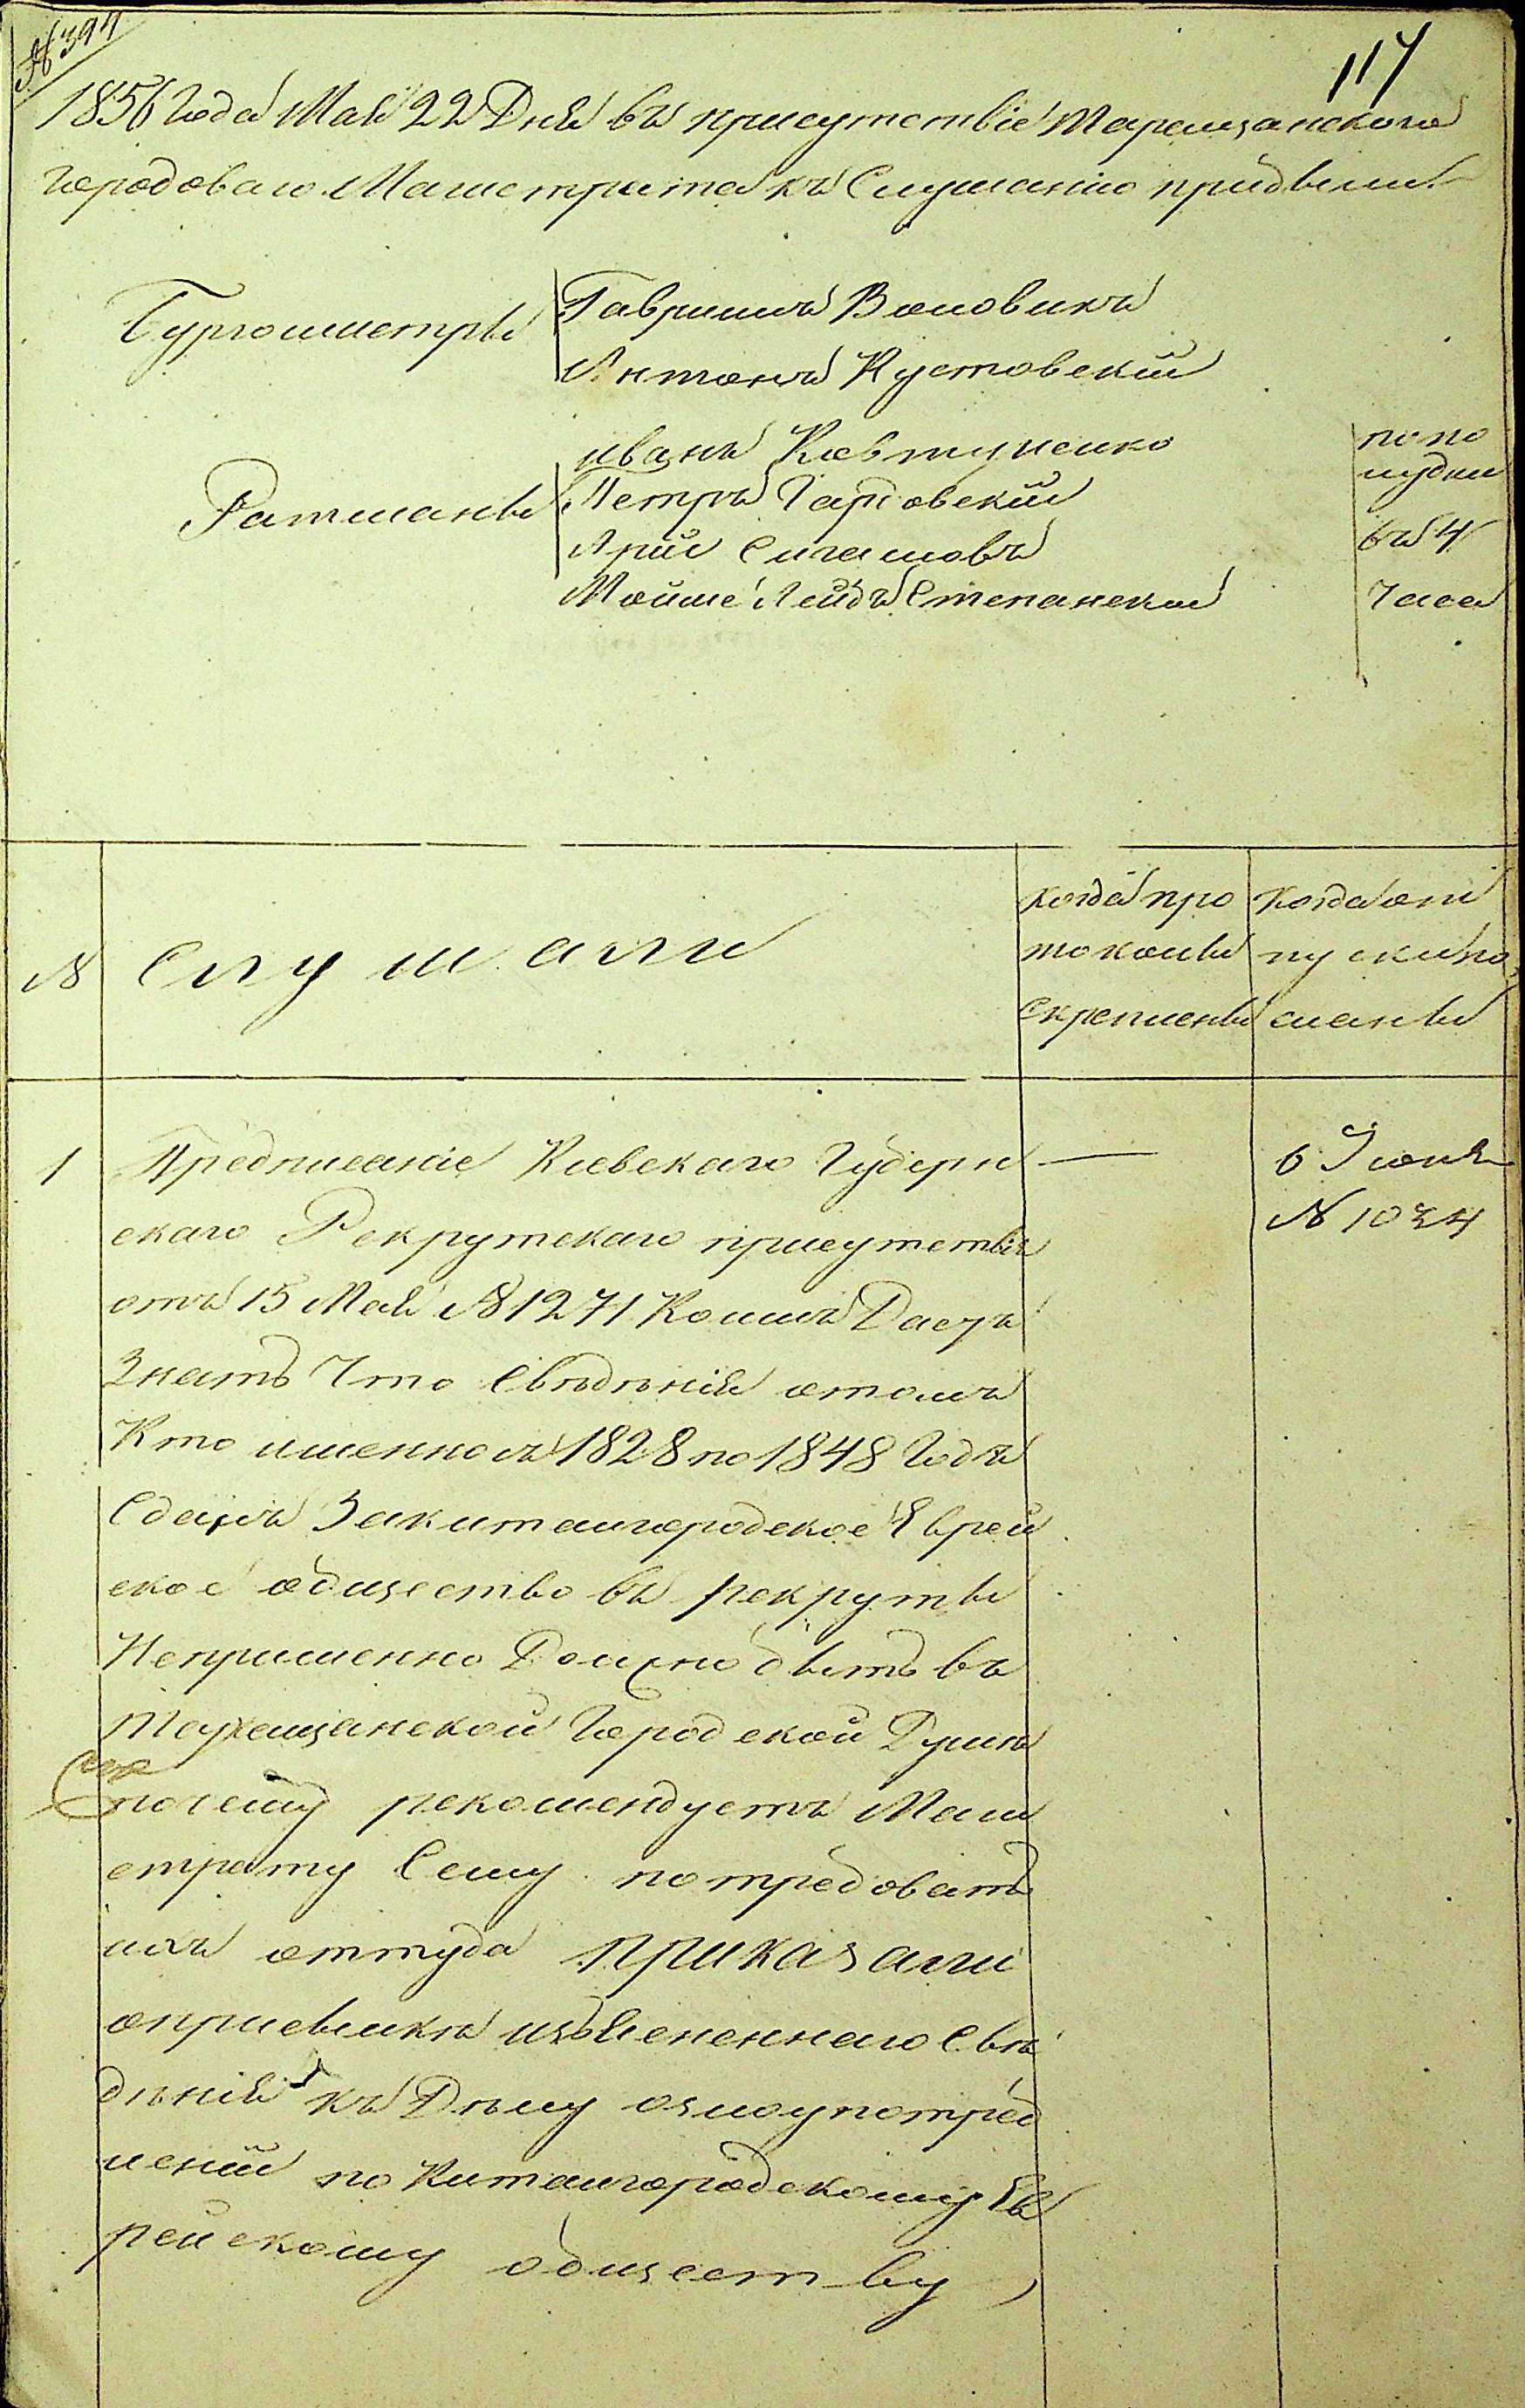 № 394
117
1856 Года Мая 22 Дня въ присутствіе Таращанского
городоваго Магистрата къ Слушанію прибыли
Бургомистры
Гаврилъ Воловикъ
Антонъ Кустовскій
Ратманы
иванъ Ковтуненко
Петръ Гарновскій
Арій Сигаловъ
Мойше Лейбъ Степанской
по по
лудни
въ 4
Часа
№
Слушали
когда про
токолы
скреплены
когда отпу
пуски по
сланы
1
Предписаніе Киевскаго Губерн
скаго Рекрутскаго присутствія
отъ 15 Мая № 1271 Коимъ Даетъ
Знать Что Свѣдѣнія отомъ
Кто именно съ 1828 по 1848 Годъ
Сданъ За китайгородское Еврей
ское общество въ рекруты
Непременно Должно быть въ
Таращанской Городской Думѣ
почему рекомендуетъ Маги
страту Сему потребовать
ихъ оттуда Приказали
оприсылкѣ изъясненнаго Свѣ
дѣнія къ Дѣлу о злоупотреб
леніи по Китайгородскому Ев
рейскому обществу
6 Іюня
№ 1034